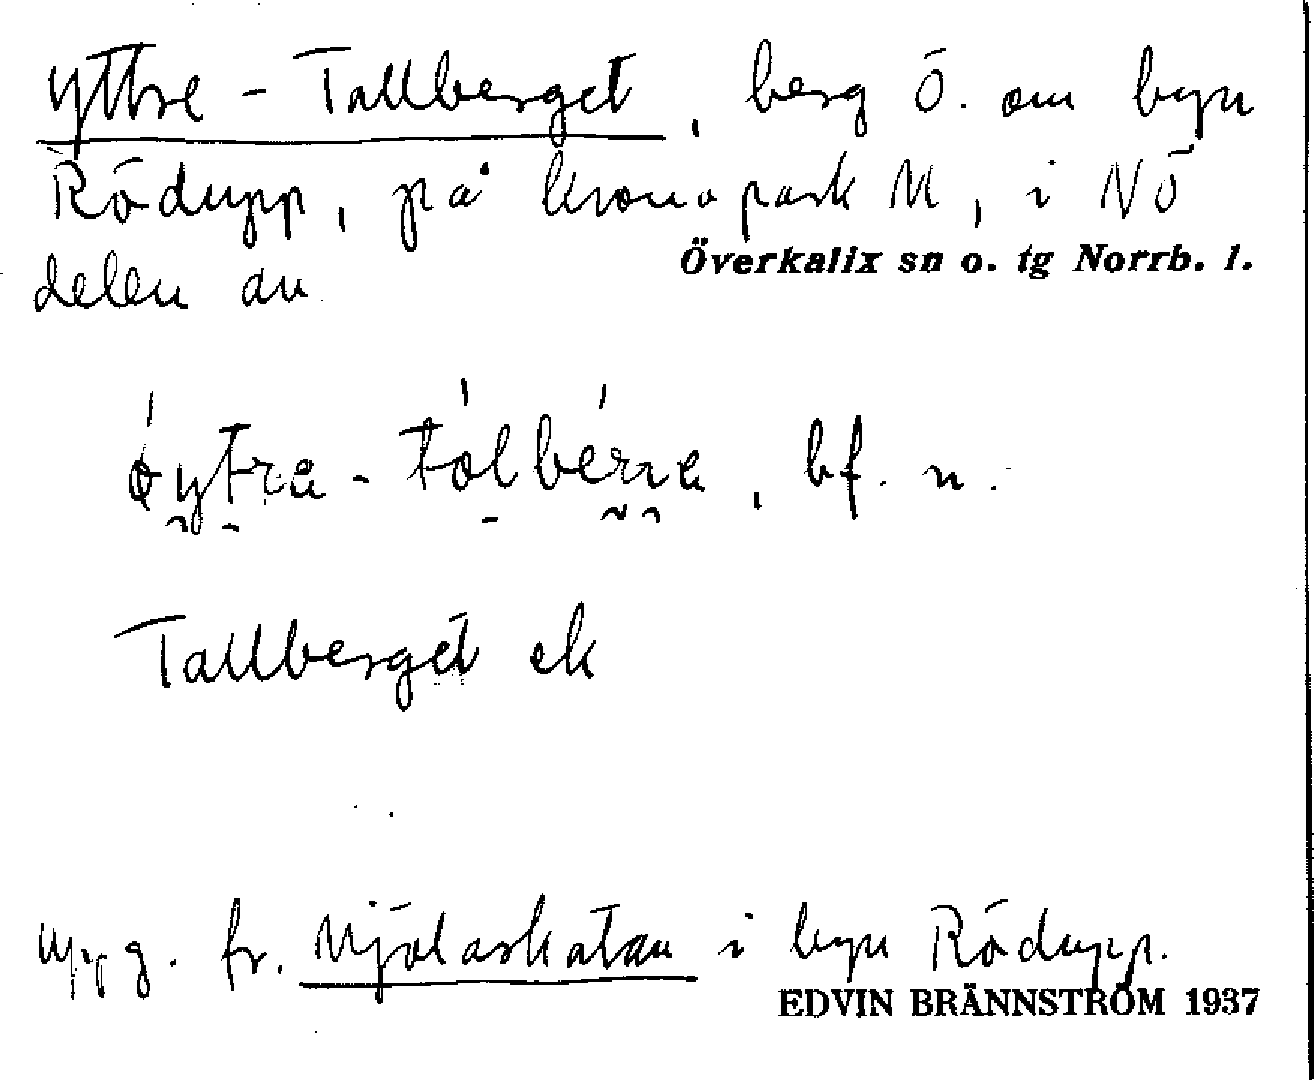 Yttre-Tallberget, berg Ö. om byn
Rödupp, på kronopark M, i NÖ
delen av
Överkalix sn o. tg Norrb. l.
bf. n.
Tallberget ek
uppg. fr. Mjölaskatan i byn Rödupp.
EDVIN BRÄNNSTRÖM 1937